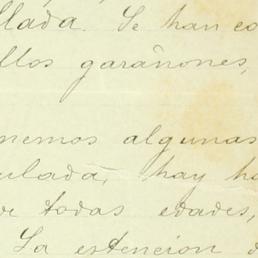 llada. Se han co
llos garañones,
nemos algunas
ulada, hay ha
de todas edades,
La estencion d